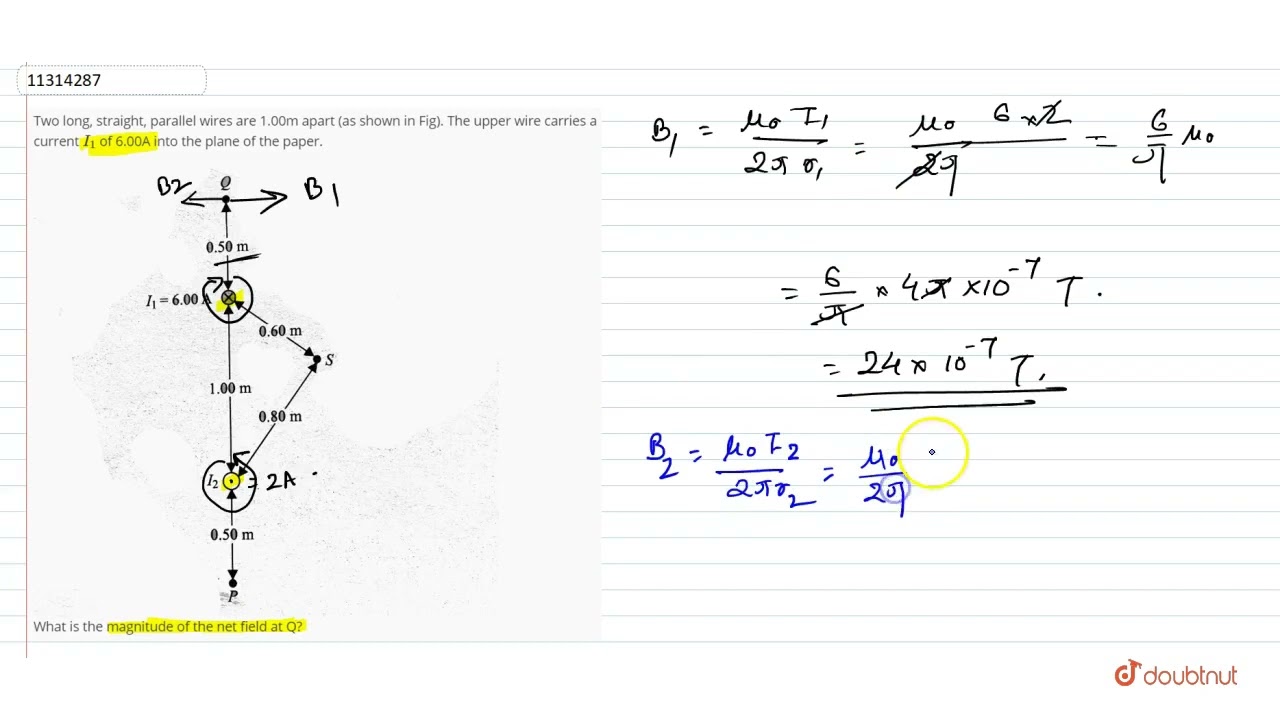 11314287
Two long, straight, parallel wires are 1.00m apart (as shown in Fig). The upper wire carries a
current I₁ of 6.00A into the plane of the paper.
B2 Q B1
0.50 m
I₁ = 6.00 A
0.60 m
S
1.00 m
0.80 m
I₂ = 2A
0.50 m
P
What is the magnitude of the net field at Q?
B₁ = μ₀ I₁ / 2π r₁ = μ₀ 6×2 / 2π = 6/π μ₀
= 6/π × 4π × 10⁻⁷ T.
= 24 × 10⁻⁷ T.
B₂ = μ₀ I₂ / 2π r₂ = μ₀ / 2π
doubtnut